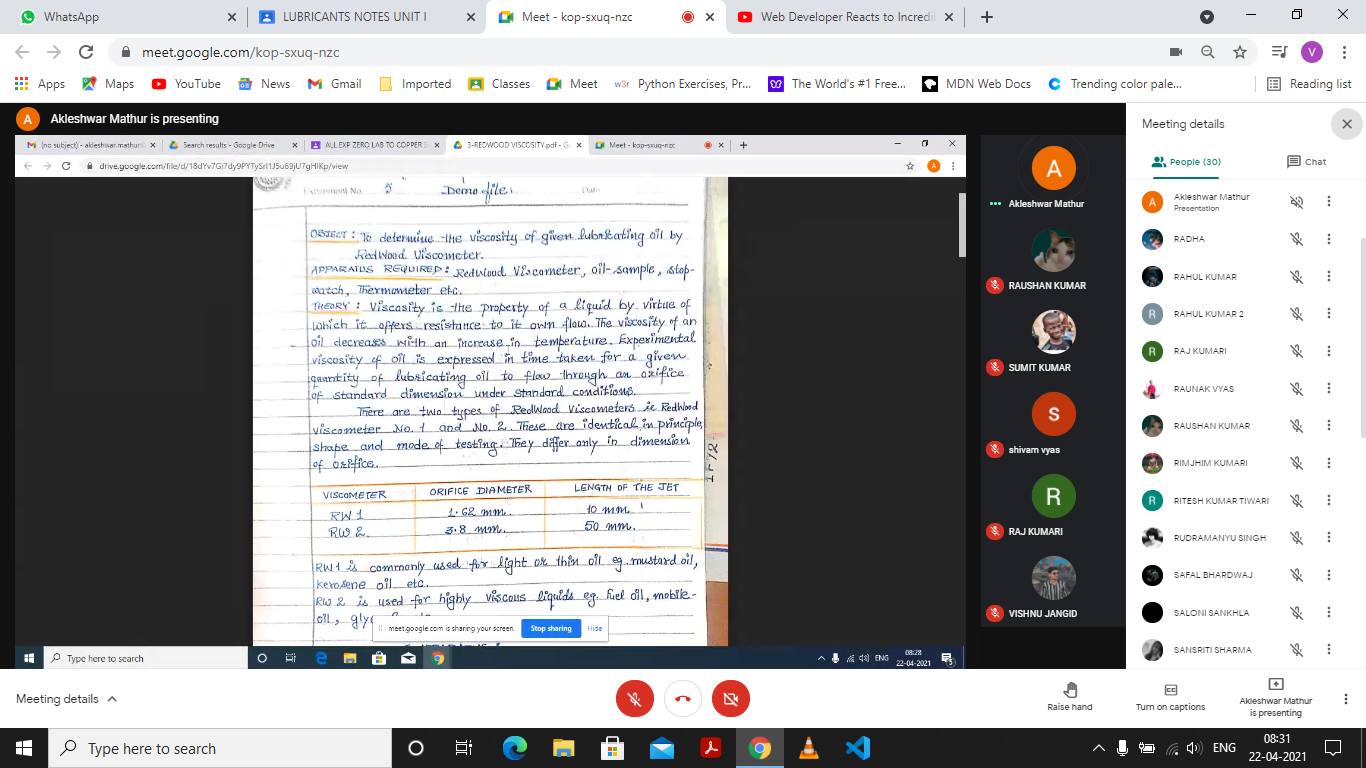 WhatsApp
LUBRICANTS NOTES UNIT I
Meet - kop-sxuq-nzc
Web Developer Reacts to Incredi
meet.google.com/kop-sxuq-nzc
V
Apps
Maps
YouTube
News
Gmail
Imported
Classes
Meet
w3r Python Exercises, Pr...
The World's #1 Free...
MDN Web Docs
Trending color pale...
Reading list
A Akleshwar Mathur is presenting
(no subject) - akleshwar.mathur
Search results - Google Drive
ALL EXP ZERO LAB TO COPPER
3-REDWOOD VISCOSITY.pdf - G
Meet - kop-sxuq-nzc
A
Experiment No. 5 Demo file: Date
OBJECT : To determine the viscosity of given lubricating oil by
RedWood Viscometer.
APPARATUS REQUIRED : RedWood Viscometer, oil-sample, stop-
watch, Thermometer etc.
THEORY : Viscosity is the property of a liquid by virtue of
which it offers resistance to it own flow. The viscosity of an
oil decreases with an increase in temperature. Experimental
viscosity of oil is expressed in time taken for a given
quantity of lubricating oil to flow through an orifice
of standard dimension under standard conditions.
There are two types of RedWood Viscometers ie RedWood
viscometer No. 1 and No. 2. These are identical in principle,
shape and mode of testing. They differ only in dimension
of orifice.
VISCOMETER ORIFICE DIAMETER LENGTH OF THE JET
RW 1 1.62 mm. 10 mm
RW 2. 3.8 mm. 50 mm.
RW 1 is commonly used for light or thin oil eg. mustard oil,
kerosene oil etc.
RW 2 is used for highly viscous liquids eg. fuel oil, mobile-
oil,
meet.google.com is sharing your screen.
Stop sharing
Hide
Type here to search
ENG
08:28
22-04-2021
5
A
Akleshwar Mathur
RAUSHAN KUMAR
SUMIT KUMAR
S
shivam vyas
R
RAJ KUMARI
VISHNU JANGID
Meeting details
People (30)
Chat
A Akleshwar Mathur
Presentation
RADHA
RAHUL KUMAR
R RAHUL KUMAR 2
R RAJ KUMARI
RAUNAK VYAS
RAUSHAN KUMAR
RIMJHIM KUMARI
R RITESH KUMAR TIWARI
RUDRAMANYU SINGH
SAFAL BHARDWAJ
SALONI SANKHLA
SANSRITI SHARMA
Meeting details
Raise hand
Turn on captions
Akleshwar Mathur
is presenting
Type here to search
ENG
08:31
22-04-2021